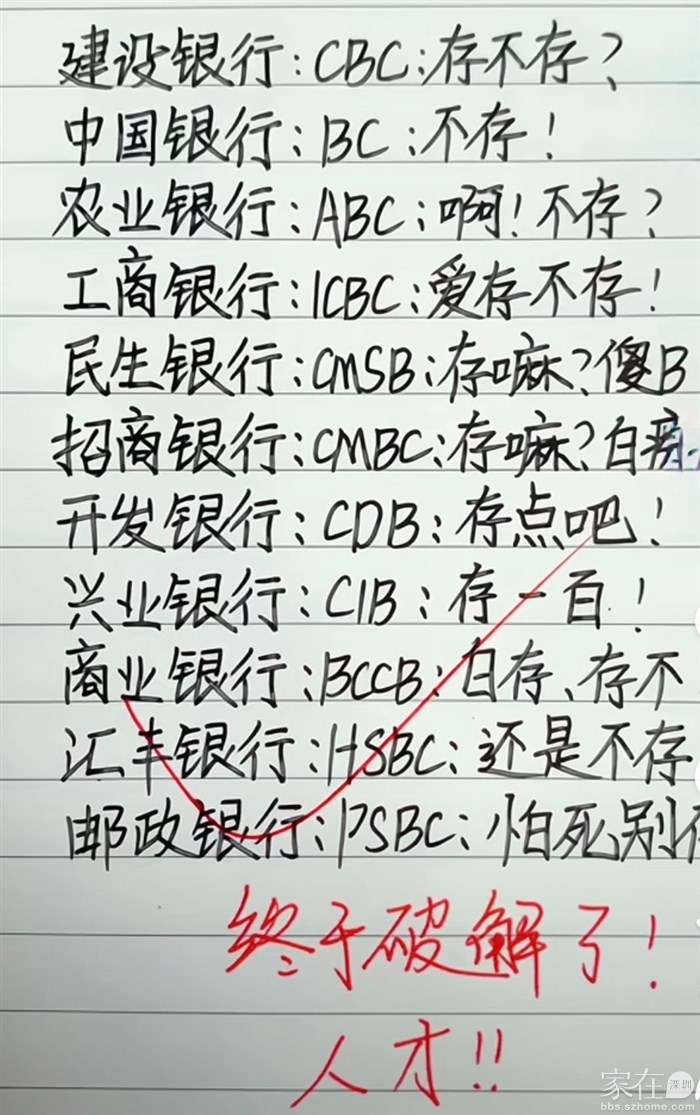 建设银行：CBC：存不存？
中国银行：BC：不存！
农业银行：ABC：啊！不存？
工商银行：ICBC：爱存不存！
民生银行：CMSB：存嘛？傻B
招商银行：CMBC：存嘛？白痴
开发银行：CDB：存点吧！
兴业银行：CIB：存一百！
商业银行：BCCB：白存、存不
汇丰银行：HSBC：还是不存
邮政银行：PSBC：怕死别存
终于破解了！
人才！！
家在 深圳
bbs.szhome.com